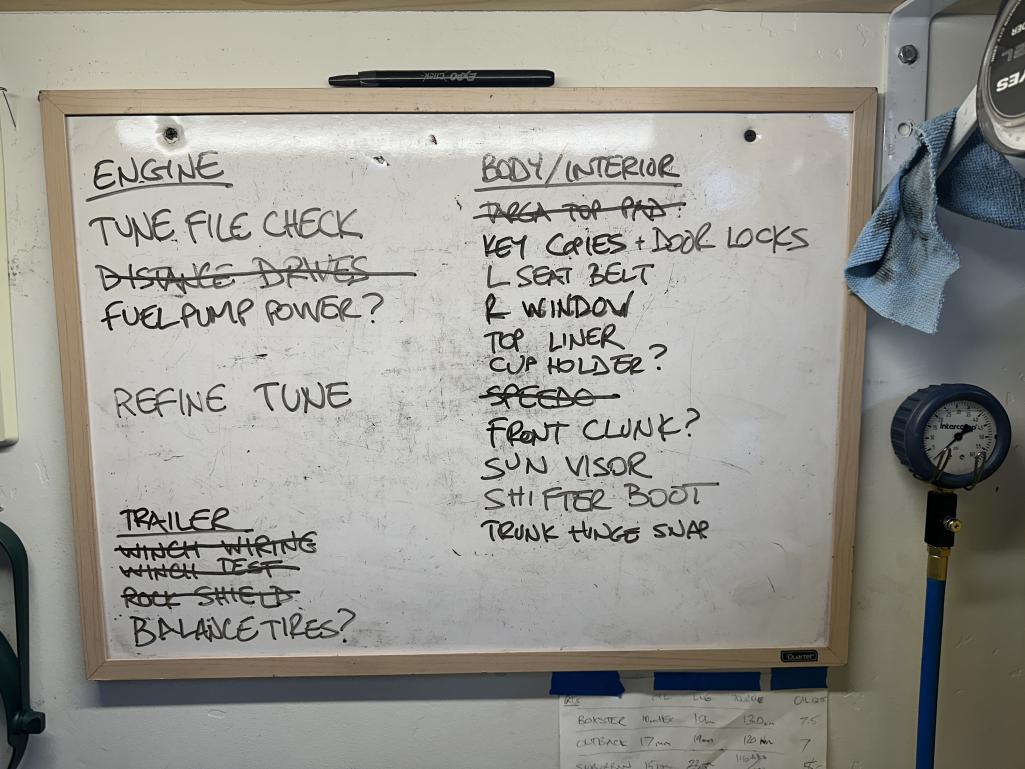 EXPO Click
ENGINE
TUNE FILE CHECK
DISTANCE DRIVES
FUEL PUMP POWER?
REFINE TUNE
TRAILER
WINCH WIRING
WINCH TEST
ROCK SHIELD
BALANCE TIRES?
BODY/INTERIOR
TARGA TOP PAD
KEY COPIES + DOOR LOCKS
L SEAT BELT
R WINDOW
TOP LINER
CUP HOLDER?
SPEEDO
FRONT CLUNK?
SUN VISOR
SHIFTER BOOT
TRUNK HINGE SNAP
Quartet
Intercomp
LUG
BOXSTER 19mm 7.5
OUTBACK 17mm 19mm 120 Nm 7
SUBURBAN